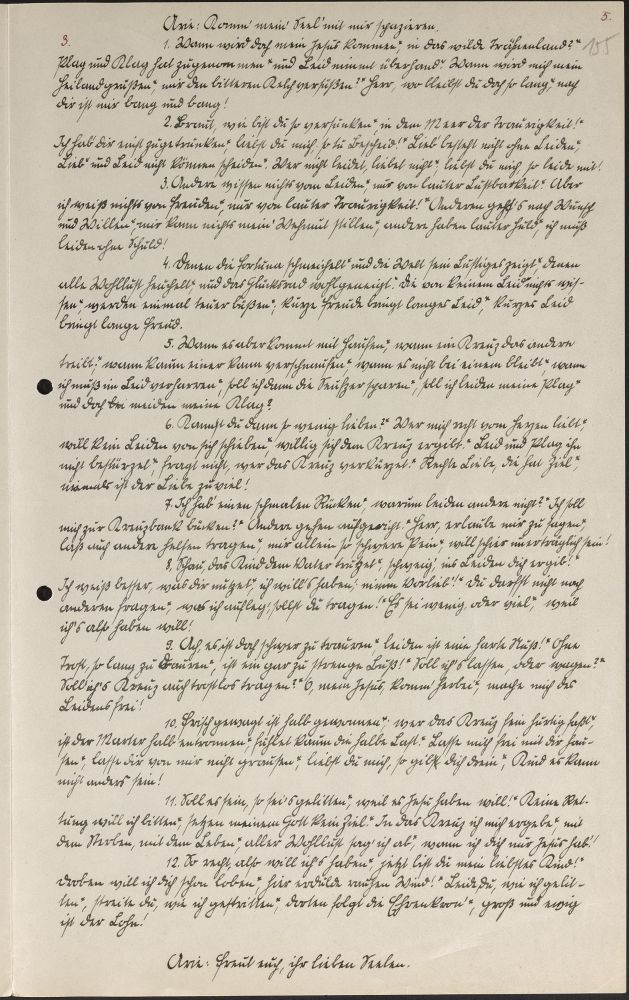 5.
Arie: Komm mein Seel' mit mir spazieren.
3.
155
1. Wann wird doch mein Jesus kommen," in das wilde Trähnenland?"
Plag und Klag hat zugenommen" und Leid nimmt überhand." Wann wird mich mein
Heiland grüßen," mir den bitteren Kelch versüßen?" Herr, wo bleibst du doch so lang," nach
dir ist mir bang und bang!
2. Braut, wie bist du so versunken," in dem Meer der Traurigkeit!"
Ich hab' dir eins zugetrunken," liebst du mich, so tu Bescheid!" Lieb' besteht nicht ohne Leiden,"
Lieb' und Leid nicht können scheiden." Wer nicht leidet, liebet nicht," liebst du mich, so leide mit!
3. Andere wissen nichts vom Leiden," nur von lauter Lustbarkeit." Aber
ich weiß nichts von Freuden," nur von lauter Traurigkeit!" Anderen geht's nach Wunsch
und Willen," mir kann nichts mein' Wehmut stillen," andere haben lauter Huld," ich muß
leiden ohne Schuld!
4. Denen die Fortuna schmeichelt" und die Welt sein Lustiges zeigt," denen
alle Wohllust heuchelt" und das Glücksrad wohlgeneigt." Die von keinem Leid nichts wis-
sen," werden einmal teuer büßen," kurze Freude bringt langes Leid," kurzes Leid
bringt lange Freud.
5. Wann es aber kommt mit Haufen," wann ein Kreuz das andere
treibt," wann kaum einer kann verschnaufen," wann es nicht bei einem bleibt" wann
ich muß im Leid verharren," soll ich dann die Seufzer sparen," soll ich leiden meine Plag"
und doch bei meiden meine Klag?
6. Kannst du dann so wenig lieben?" Wer mich recht vom Herzen liebt,"
will kein Leiden von sich schieben" willig sich dem Kreuz ergibt." Leid und Plag ihn
nicht bestürzet," fragt nicht, wer das Kreuz verkürzet." Rechte Liebe, die hat Ziel,"
niemals ist der Liebe zuviel!
7. Ich hab' einen schmalen Rücken," warum leiden andere nicht?" Ich soll
mich zur Kreuzbank bücken?" Andere gehen aufgericht." Herr, erlaube mir zu sagen,"
laß auch andere helfen tragen," mir allein so schwere Pein," will schier unerträglich sein!
8. Schau, das Kind dem Vater trutzet," schweig', ins Leiden dich ergib!"
Ich weiß besser, was dir nutzet," ich will's haben, nimm Vorlieb!" Du darfst nicht nach
anderen fragen," was ich aufleg', sollst du tragen!" Es sei wenig, oder viel," weil
ich's also haben will!
9. Ach, es ist doch schwer zu trauren" leiden ist eine harte Nuß!" Ohne
Trost, so lang zu dauren," ist ein gar zu strenge Buß!" Soll ich's lassen, oder wagen?"
Soll ich's Kreuz auch trostlos tragen?" O, mein Jesus, komm herbei," mache mich des
Leidens frei!
10. Frisch gewagt ist halb gewonnen," wer das Kreuz fein hurtig faßt,"
ist der Marter halb entronnen," fühlet kaum die halbe Last." Lasse mich frei mit dir hau-
sen," lasse dir von mir nicht grausen," liebst du mich, so gibst dich drein," Kind es kann
nicht anders sein!
11. Soll es sein, so sei's gelitten," weil es Jesu haben will!" Keine Ret-
tung will ich bitten," setzen meinem Gott kein Ziel." In das Kreuz ich mich ergebe," mit
dem Sterben, mit dem Leben," aller Wohllust sag' ich ab," wann ich dich nur Jesus hab'!
12. So recht, also will ich's haben," jetzt bist du mein liebstes Kind!"
Droben will ich dich schon loben," hier erdulde rauhen Wind!" Leide du, wie ich gelit-
ten," streite du, wie ich gestritten," dorten folgt die Ehrenkron'," groß und ewig
ist der Lohn!
Arie: Freut euch, ihr lieben Seelen.